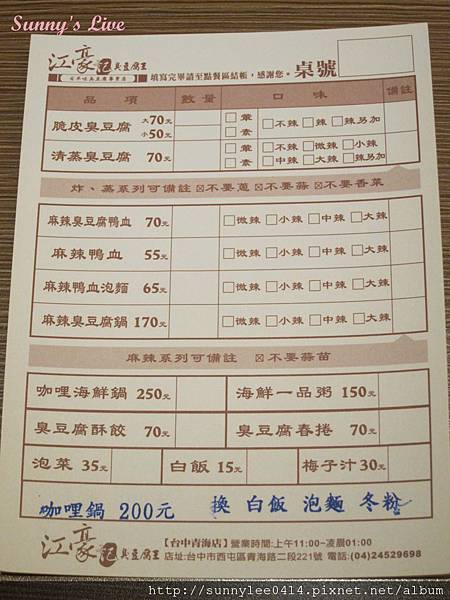 Sunny's Live
江豪記臭豆腐王
填寫完畢請至點餐區結帳，感謝您。 桌號
品項 數量 口味 備註
脆皮臭豆腐 大70元 小50元 □葷 □素 □不辣 □辣 □辣另加
清蒸臭豆腐 70元 □葷 □素 □不辣 □微辣 □小辣 □中辣 □大辣 □辣另加
炸、蒸系列可備註 ☒不要蔥 ☒不要蒜 ☒不要香菜
麻辣臭豆腐鴨血 70元 □微辣 □小辣 □中辣 □大辣
麻辣鴨血 55元 □微辣 □小辣 □中辣 □大辣
麻辣鴨血泡麵 65元 □微辣 □小辣 □中辣 □大辣
麻辣臭豆腐鍋 170元 □微辣 □小辣 □中辣 □大辣
麻辣系列可備註 ☒不要蒜苗
咖哩海鮮鍋 250元 海鮮一品粥 150元
臭豆腐酥餃 70元 臭豆腐春捲 70元
泡菜 35元 白飯 15元 梅子汁30元
咖哩鍋 200元 換 白飯 泡麵 冬粉
江豪記臭豆腐王 【台中青海店】營業時間:上午11:00~凌晨01:00
店址:台中市西屯區青海路二段221號 電話:(04)24529698
http://sunnylee0414.pixnet.net/album